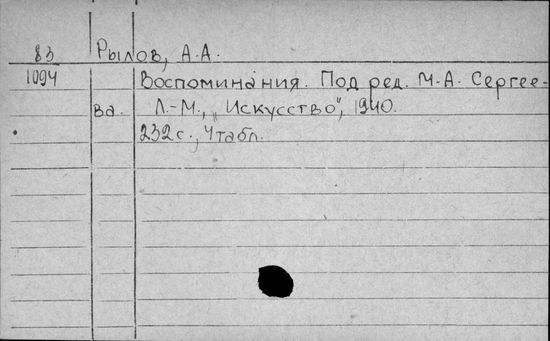 83 Рылов, А.А.
1094 Воспоминания. Под ред. М.А. Сергее-
ва. Л.-М., „Искусство", 1940.
232 с., 4 табл.